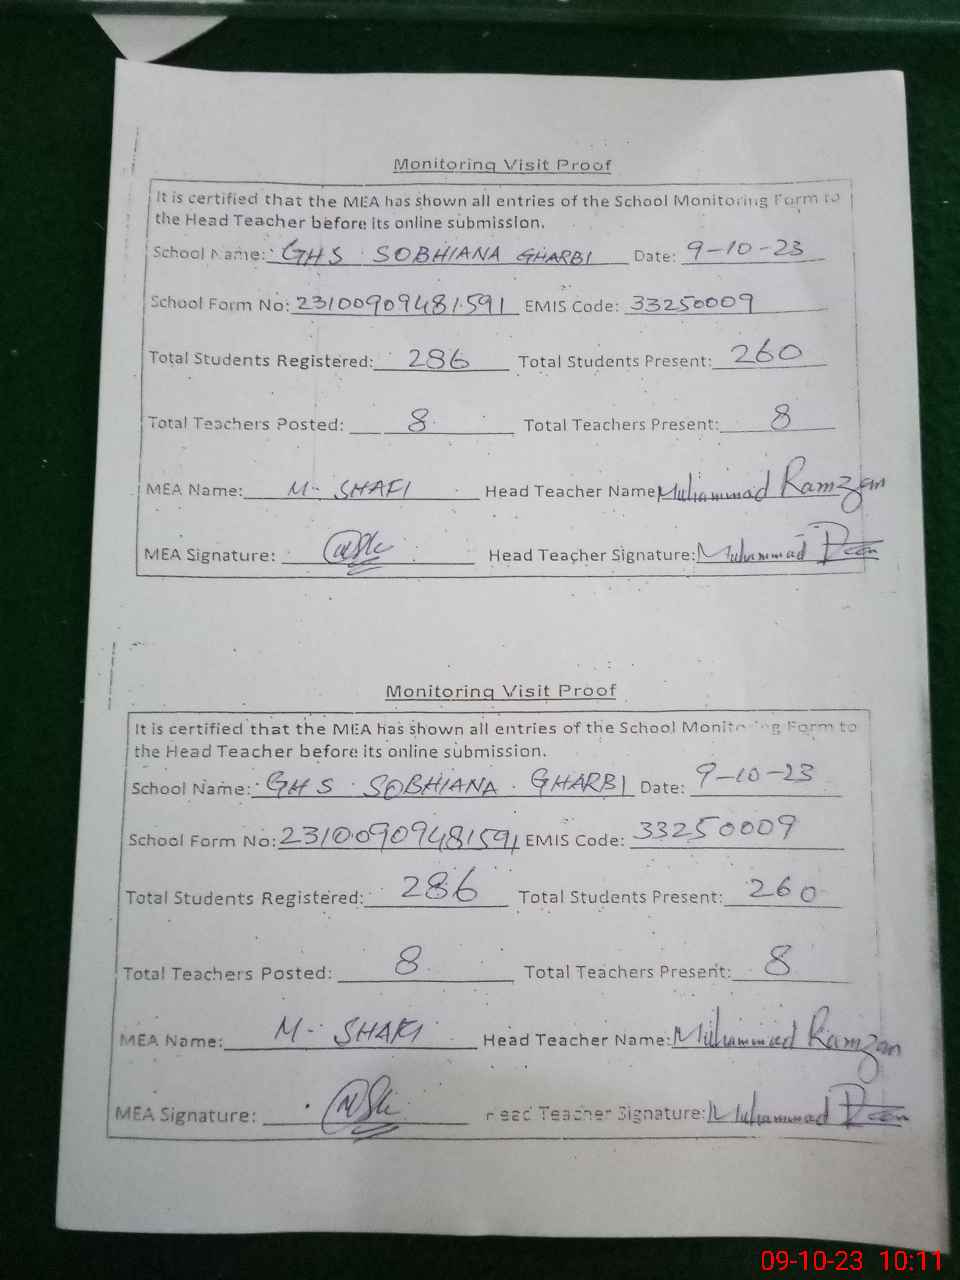 Monitoring Visit Proof
It is certified that the MEA has shown all entries of the School Monitoring Form to
the Head Teacher before its online submission.
School Name: GHS SOBHIANA GHARBI Date: 9-10-23
School Form No: 23100909481591 EMIS Code: 33250009
Total Students Registered: 286 Total Students Present: 260
Total Teachers Posted: 8 Total Teachers Present: 8
MEA Name: M. SHAFI Head Teacher Name Muhammad Ramzan
MEA Signature: Head Teacher Signature: Muhammad
Monitoring Visit Proof
It is certified that the MEA has shown all entries of the School Monitoring Form to
the Head Teacher before its online submission.
School Name: GHS SOBHIANA GHARBI Date: 9-10-23
School Form No: 23100909481591 EMIS Code: 33250009
Total Students Registered: 286 Total Students Present: 260
Total Teachers Posted: 8 Total Teachers Present: 8
MEA Name: M. SHAFI Head Teacher Name: Muhammad Ramzan
MEA Signature: Head Teacher Signature: Muhammad
09-10-23 10:11